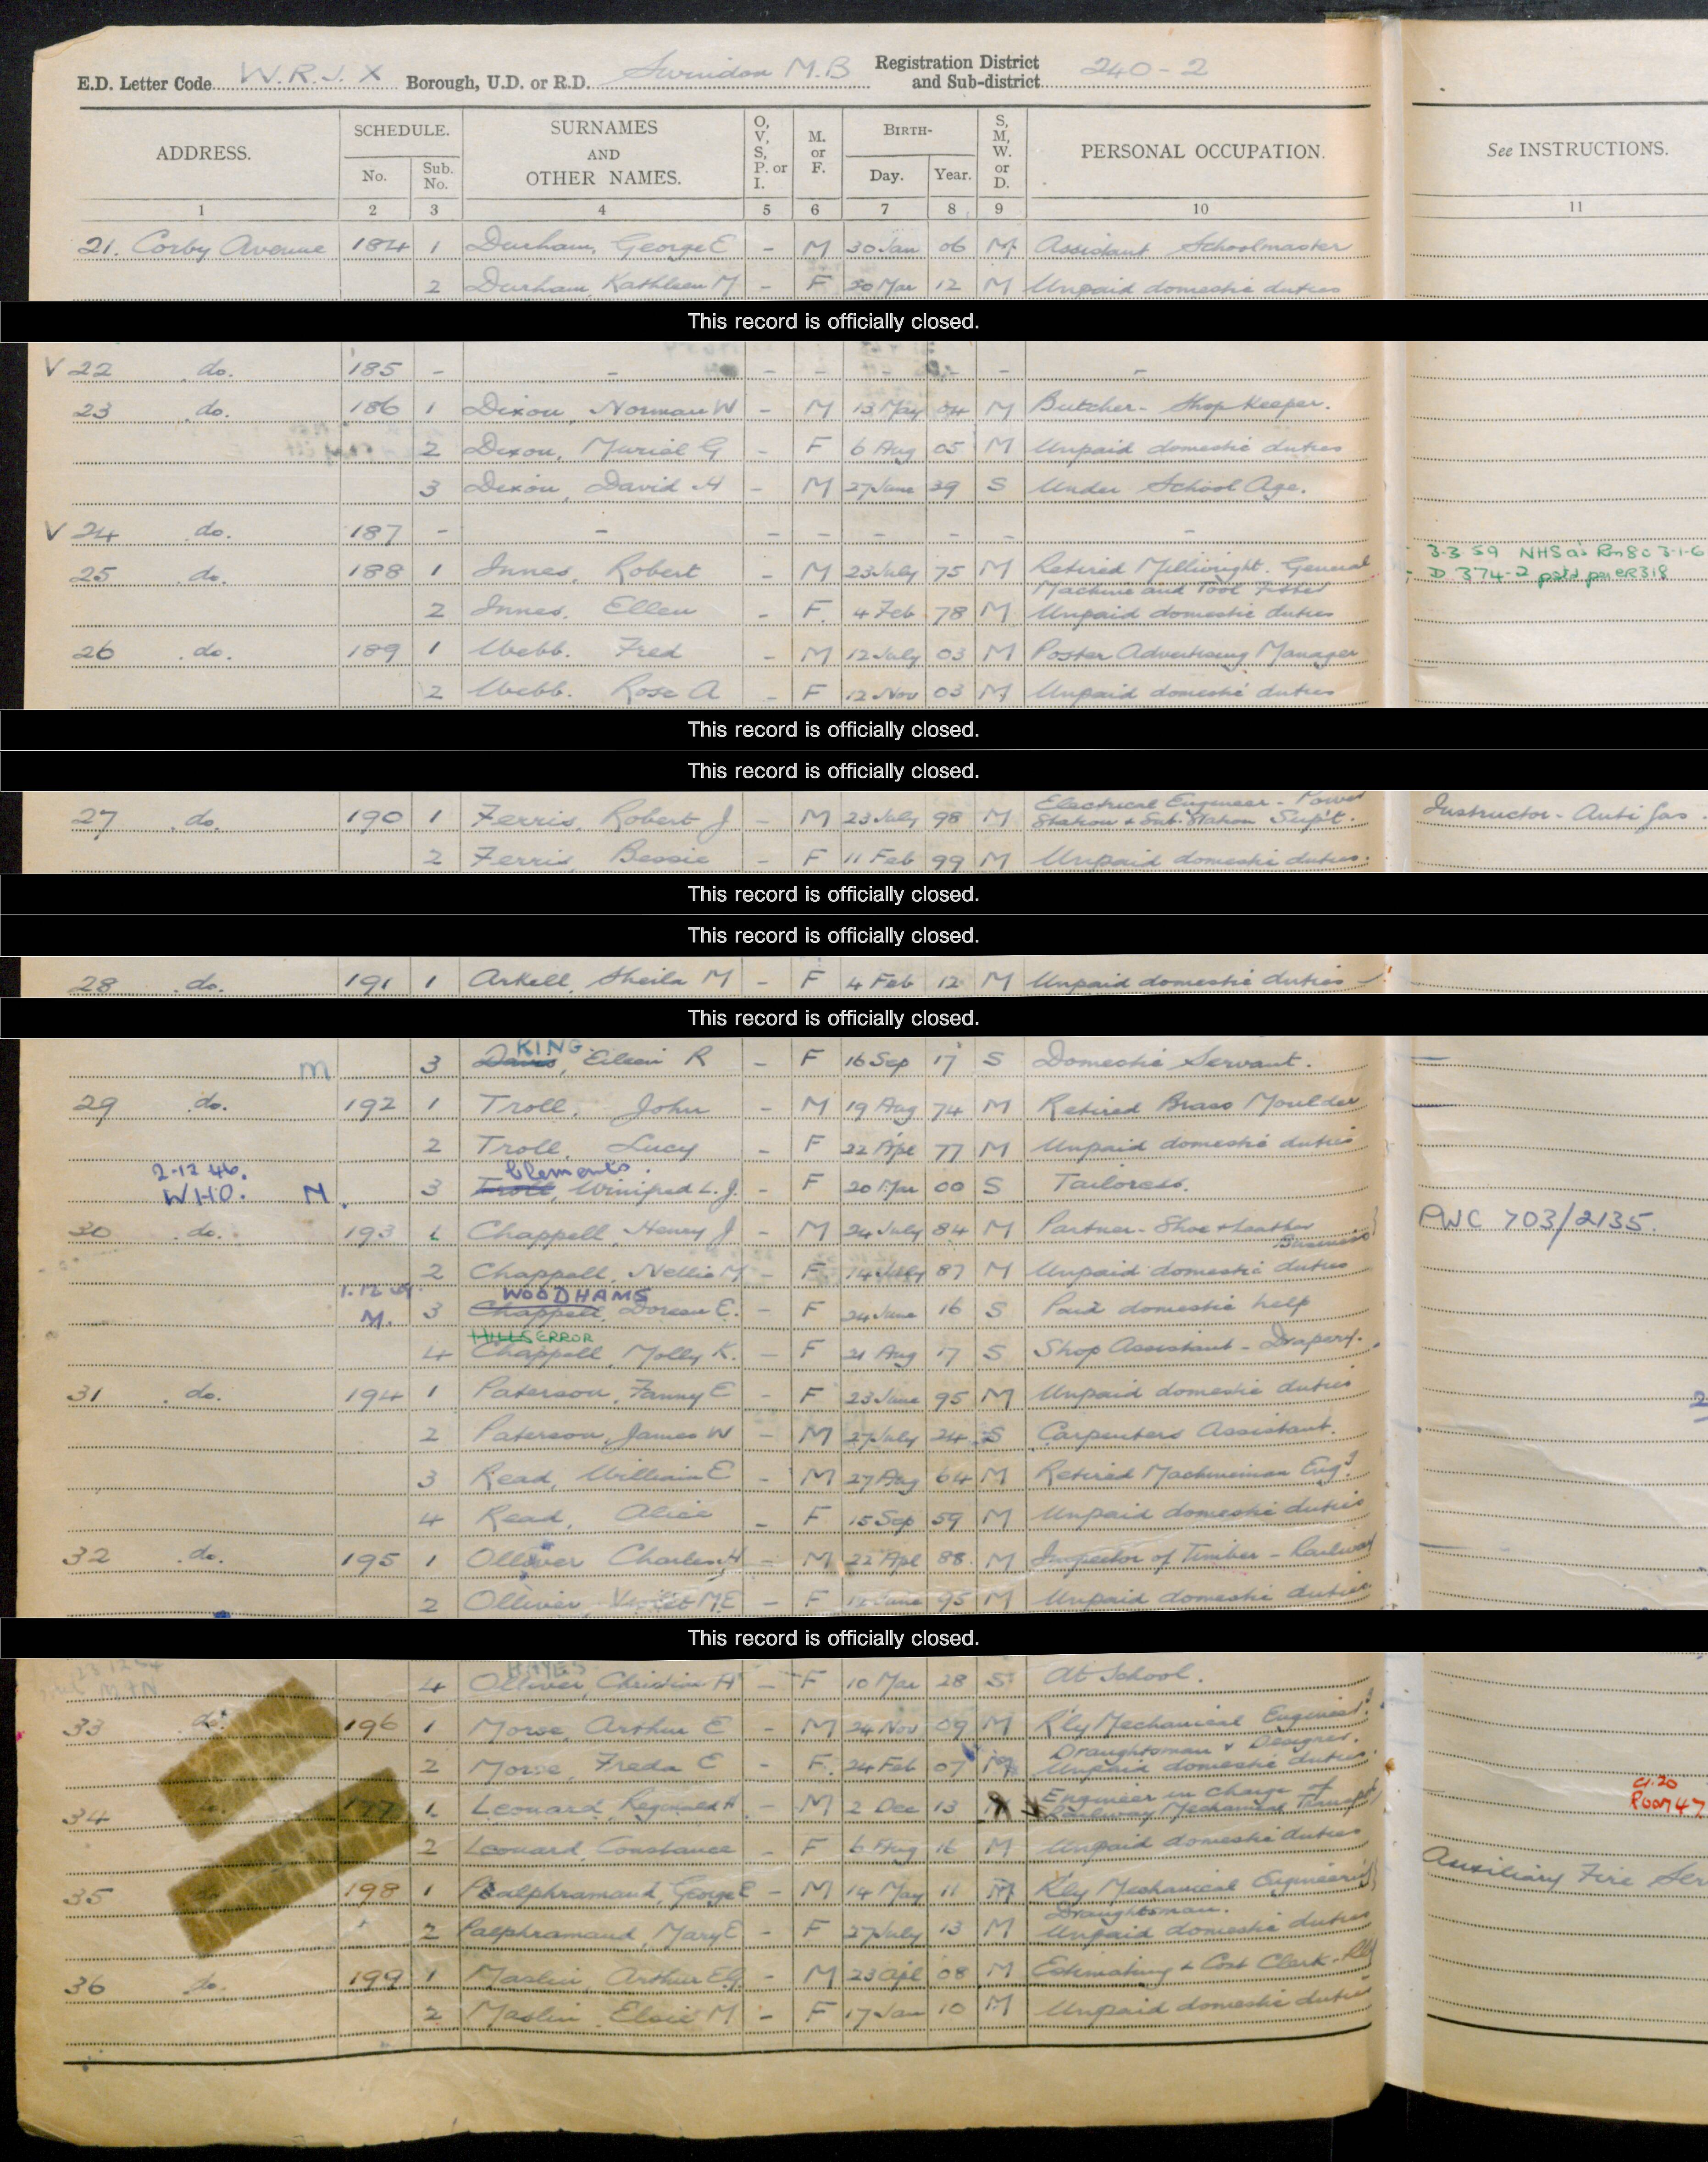 E.D. Letter Code W.R.J. X Borough, U.D. or R.D. Swindon M.B Registration District and Sub-district 240-2
ADDRESS. SCHEDULE. No. Sub. No. SURNAMES AND OTHER NAMES. O, V, S, P. or I. M. or F. BIRTH- Day. Year. S, M, W. or D. PERSONAL OCCUPATION. See INSTRUCTIONS.
1 2 3 4 5 6 7 8 9 10 11
21. Corby Avenue 184 1 Durham, George E - M 30 Jan 06 M Assistant Schoolmaster
2 Durham, Kathleen M - F 30 Mar 12 M Unpaid domestic duties
This record is officially closed.
V 22 do. 185 - - - - - - - -
23 do. 186 1 Dixon, Norman W - M 13 May 04 M Butcher - Shop Keeper.
2 Dixon, Muriel G - F 6 Aug 05 M Unpaid domestic duties
3 Dixon, David H - M 27 June 39 S Under School Age.
V 24 do. 187 - - - - - - - -
3-3 59 NHS
25 do. 188 1 Innes, Robert - M 23 July 75 M Retired Millwright. General D 374-2
Machine and Tool Fitter
2 Innes, Ellen - F. 4 Feb 78 M Unpaid domestic duties
26 do. 189 1 Webb. Fred - M 12 July 03 M Poster Advertising Manager
2 Webb. Rose A - F 12 Nov 03 M Unpaid domestic duties
This record is officially closed.
This record is officially closed.
Electrical Engineer - Power
27 do. 190 1 Ferris, Robert J - M 23 July 98 M Station & Sub. Station Sup't. Instructor - Anti Gas.
2 Ferris, Bessie - F 11 Feb 99 M Unpaid domestic duties.
This record is officially closed.
This record is officially closed.
28 do. 191 1 Arkell, Sheila M - F 4 Feb 12 M Unpaid domestic duties
This record is officially closed.
KING
m 3 Davis, Eileen R - F 16 Sep 17 S Domestic Servant.
29 do. 192 1 Troll, John - M 19 Aug 74 M Retired Brass Moulder
2 Troll, Lucy - F 22 Apl 77 M Unpaid domestic duties
2-12 46. Clements.
WHO. M. 3 Troll, Winifred L. J. - F 20 Mar 00 S Tailoress.
30 do. 193 1 Chappell, Henry J - M 24 July 84 M Partner - Shoe & Leather PWC 703/2135.
Business
2 Chappell, Nellie M - F 14 July 87 M Unpaid domestic duties
WOODHAMS
M. 3 Chappell, Doreen E. - F 24 June 16 S Paid domestic help
HILLS ERROR
4 Chappell, Molly K. - F 21 Aug 17 S Shop Assistant - Drapery.
31 do. 194 1 Paterson, Fanny E - F 23 June 95 M Unpaid domestic duties
2 Paterson, James W - M 27 July 24 S Carpenters Assistant.
3 Read, William E - M 27 Aug 64 M Retired Machineman Eng.
4 Read, Alice - F 15 Sep 59 M Unpaid domestic duties
32 do. 195 1 Olliver Charles H - M 22 Apl 88. M Inspector of Timber - Railway
2 Olliver, Violet M.E - F June 95 M Unpaid domestic duties
This record is officially closed.
HAYES
4 Olliver, Christian A - F 10 Mar 28 S At School.
33 do. 196 1 Morse, Arthur E - M 24 Nov 09 M R'ly Mechanical Engineer.
Draughtsman & Designer.
2 Morse, Freda E - F. 24 Feb 07 M Unpaid domestic duties.
Engineer in charge of
34 do. 197 1. Leonard, Reginald A - M 2 Dec 13 Railway Mechanical Transpt
2 Leonard, Constance - F 6 Aug 16 M Unpaid domestic duties
35 do 198 1 Palphramand, George E - M 14 May 11 M Rly Mechanical Engineering Auxiliary Fire Ser
Draughtsman.
2 Palphramand, Mary E - F 27 July 13 M Unpaid domestic duties
36 do. 199 1 Maslin, Arthur E.G. - M 23 Apl 08 M Estimating & Cost Clerk - Rly
2 Maslin, Elsie M - F 17 Jan 10 M Unpaid domestic duties